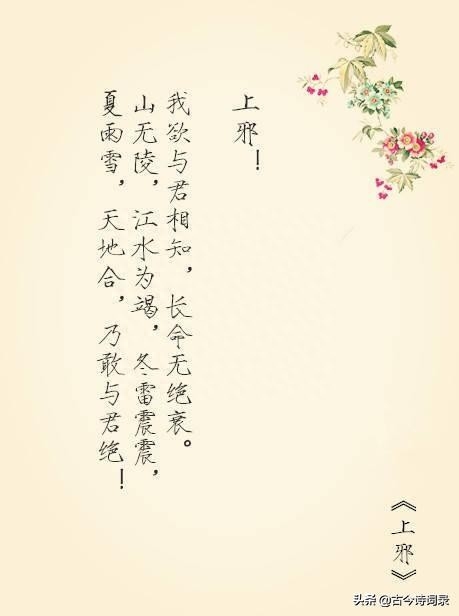 上邪！
我欲与君相知，长命无绝衰。
山无陵，江水为竭，冬雷震震，
夏雨雪，天地合，乃敢与君绝！
《上邪》
头条@古今诗词录